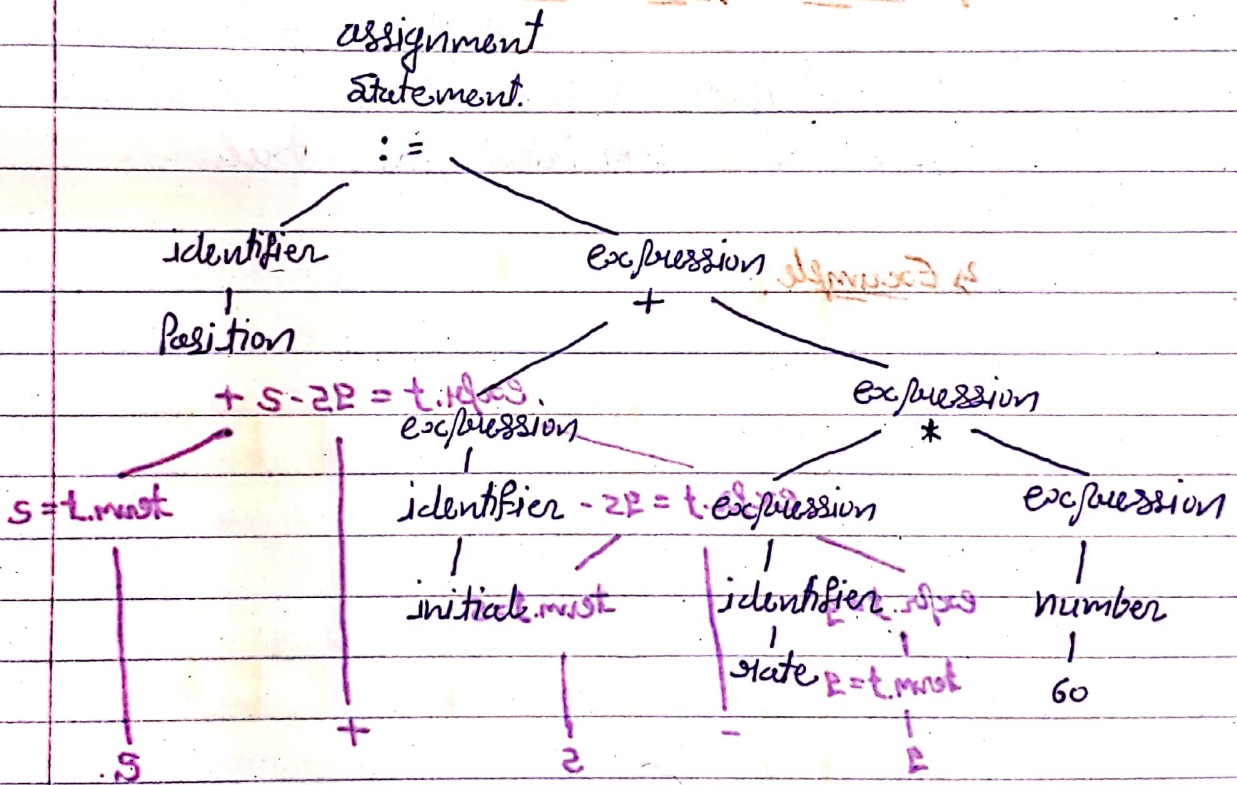 assignment
statement.
:=
identifier expression
+
Position
expression *
expression
identifier expression expression
initial identifier number
rate 60